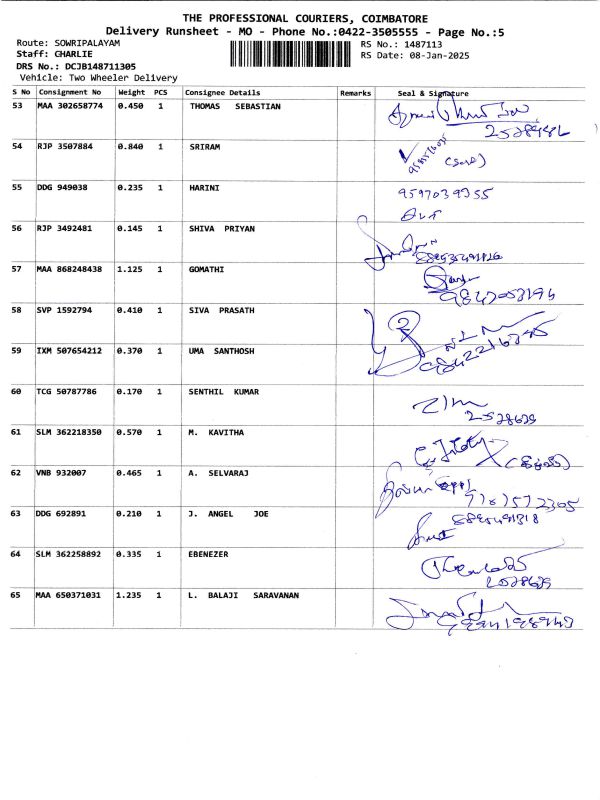 THE PROFESSIONAL COURIERS, COIMBATORE
Delivery Runsheet - MO - Phone No.:0422-3505555 - Page No.:5
Route: SOWRIPALAYAM RS No.: 1487113
Staff: CHARLIE RS Date: 08-Jan-2025
DRS No.: DCJB148711305
Vehicle: Two Wheeler Delivery
S No Consignment No Weight PCS Consignee Details Remarks Seal & Signature
53 MAA 302658774 0.450 1 THOMAS SEBASTIAN
54 RJP 3507884 0.840 1 SRIRAM
55 DDG 949038 0.235 1 HARINI 9597039355
56 RJP 3492481 0.145 1 SHIVA PRIYAN
57 MAA 868248438 1.125 1 GOMATHI
58 SVP 1592794 0.410 1 SIVA PRASATH
59 IXM 507654212 0.370 1 UMA SANTHOSH
60 TCG 50787786 0.170 1 SENTHIL KUMAR
2528639
61 SLM 362218350 0.570 1 M. KAVITHA
62 VNB 932007 0.465 1 A. SELVARAJ
63 DDG 692891 0.210 1 J. ANGEL JOE
64 SLM 362258892 0.335 1 EBENEZER
2528639
65 MAA 650371031 1.235 1 L. BALAJI SARAVANAN